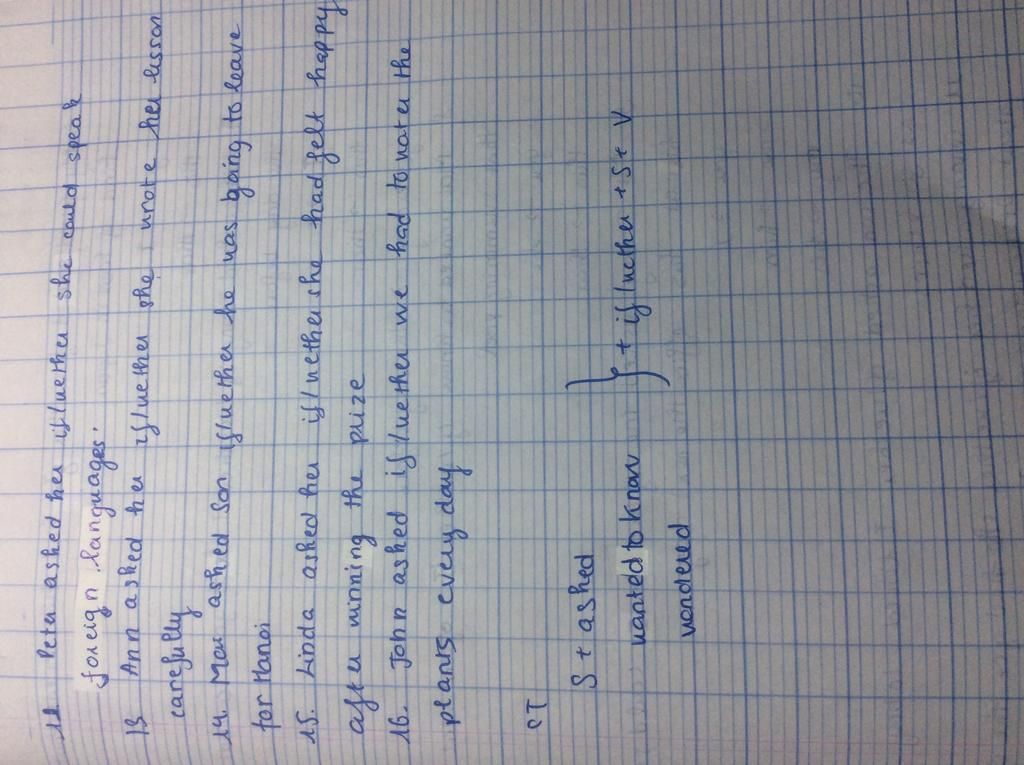 12. Peter asked her if/wether she could speak
foreign languages.
13 Ann asked her if/wether she wrote her lesson
carefully
14. Mom asked son if/wether he was going to leave
for Hanoi
15. Linda asked her if/wether she had felt happy
after winning the prize
16. John asked if/wether we had to water the
plants every day
CT
S + asked
wanted to know } + if/wether + S + V
wondered